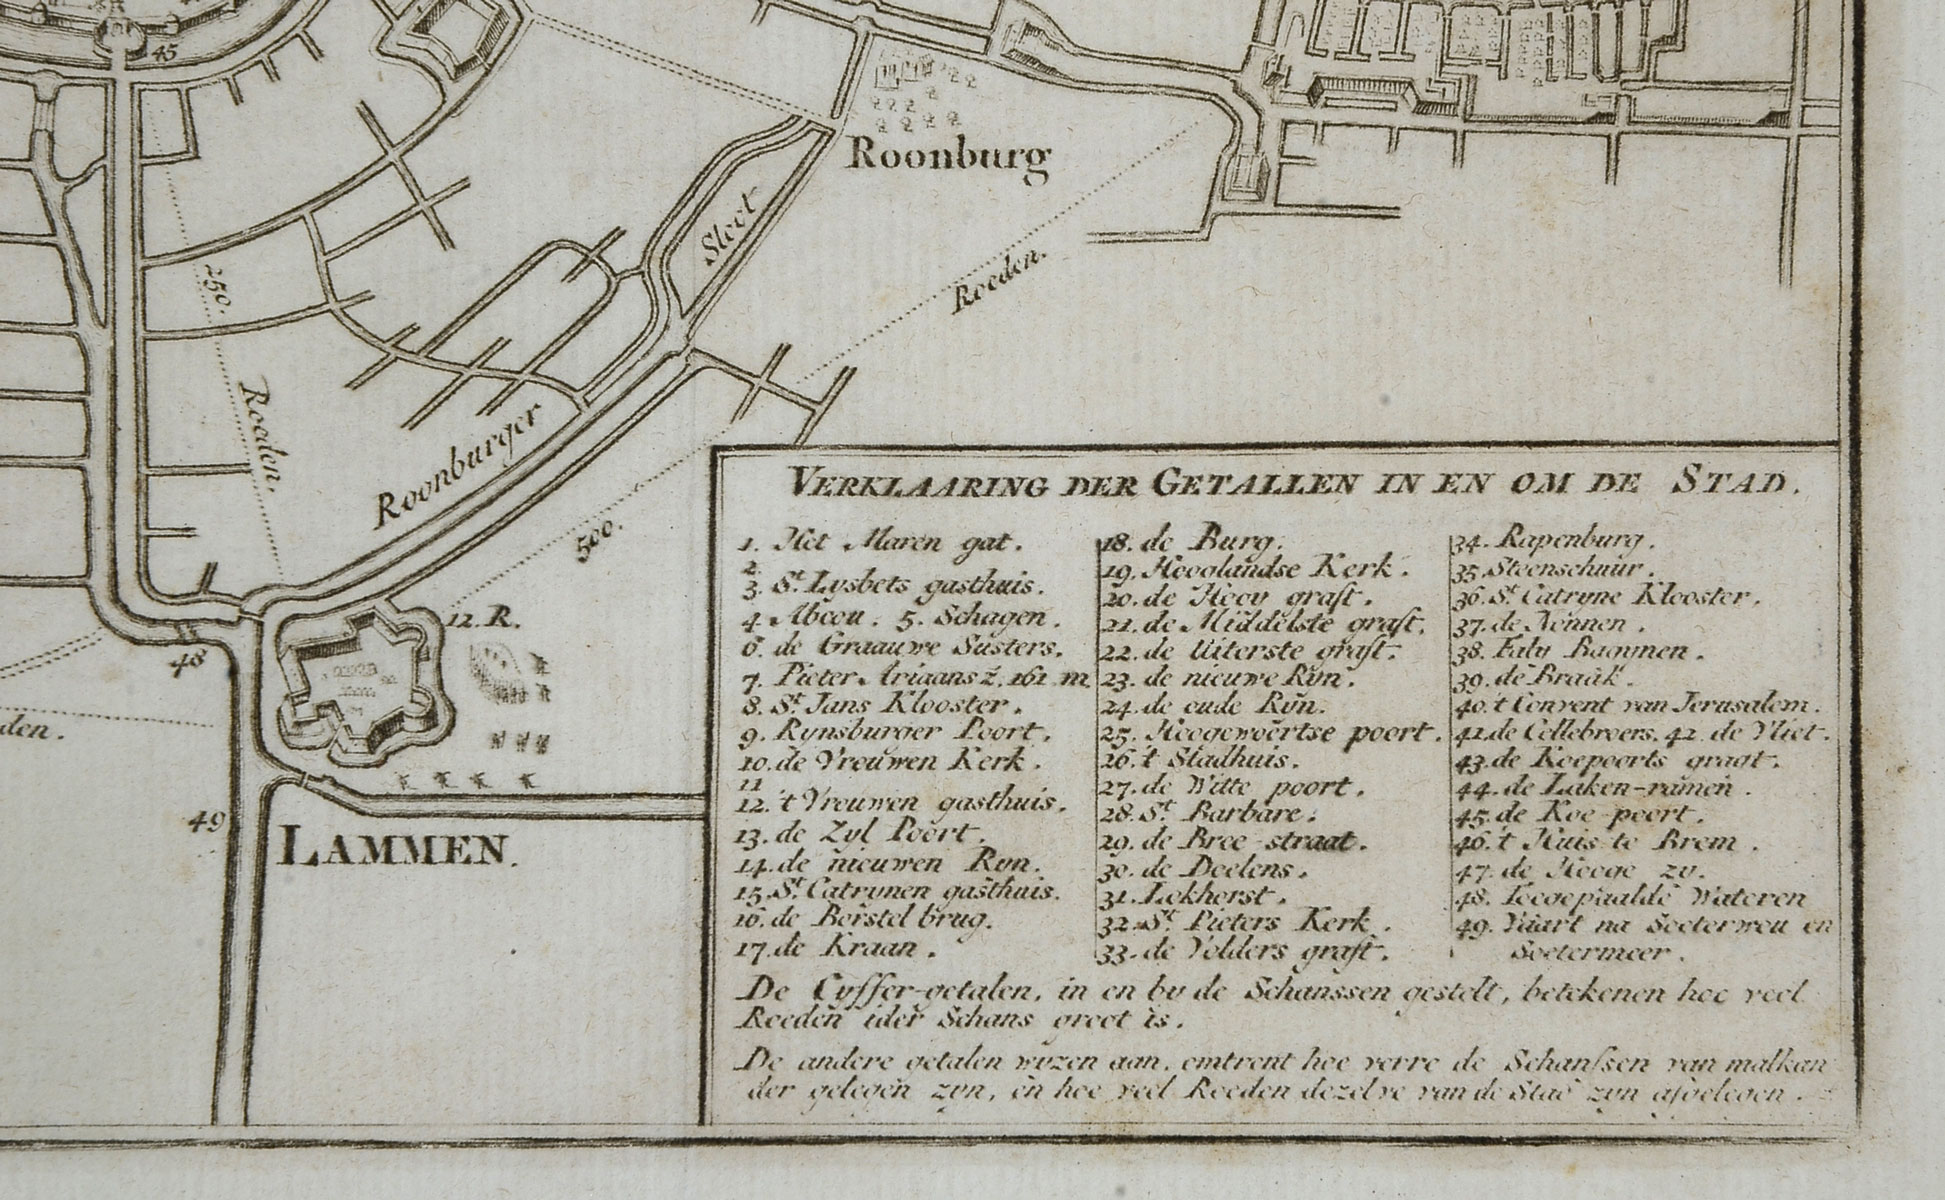 45
Roonburg
Sloot
Roeden.
250.
Roeden.
Roonburger
500.
12. R.
48
den.
49
LAMMEN.
VERKLAARING DER GETALLEN IN EN OM DE STAD.
1. Het Maren gat.
2.
3. St. Lysbets gasthuis.
4. Abcou. 5. Schagen.
6. de Graauwe Susters.
7. Pieter Ariaans z. 161. m.
8. St. Jans Klooster.
9. Rynsburger Poort.
10. de Vrouwen Kerk.
11
12. 't Vrouwen gasthuis.
13. de Zyl Poort.
14. de nieuwen Ryn.
15. St. Catrynen gasthuis.
16. de Borstel brug.
17. de Kraan.
18. de Burg.
19. Hooglandse Kerk.
20. de Hooy graft.
21. de Middelste graft.
22. de Uiterste graft.
23. de nieuwe Ryn.
24. de oude Ryn.
25. Hoogewoertse poort.
26. 't Stadhuis.
27. de Witte poort.
28. St. Barbare.
29. de Bree straat.
30. de Doelens.
31. Lokhorst.
32. St. Pieters Kerk.
33. de Volders graft.
34. Rapenburg.
35. Steenschuur.
36. St. Catryne Klooster.
37. de Nonnen.
38. Faly Bagynen.
39. de Braak.
40. 't Convent van Jerusalem.
41. de Cellebroers. 42. de Vliet.
43. de Koepoorts graat.
44. de Laken-ramen.
45. de Koe poort.
46. 't Huis te Brem.
47. de Hooge zy.
48. Toegepaalde Wateren
49. Vaart na Soeterwou en
Soetermeer.
De Cyffer-getalen, in en by de Schanssen gestelt, betekenen hoe veel
Roeden ider Schans groot is.
De andere getalen wyzen aan, omtrent hoe verre de Schanssen van malkan
der gelegen zyn, en hoe veel Roeden dezelve van de Stad zyn afgelegen.